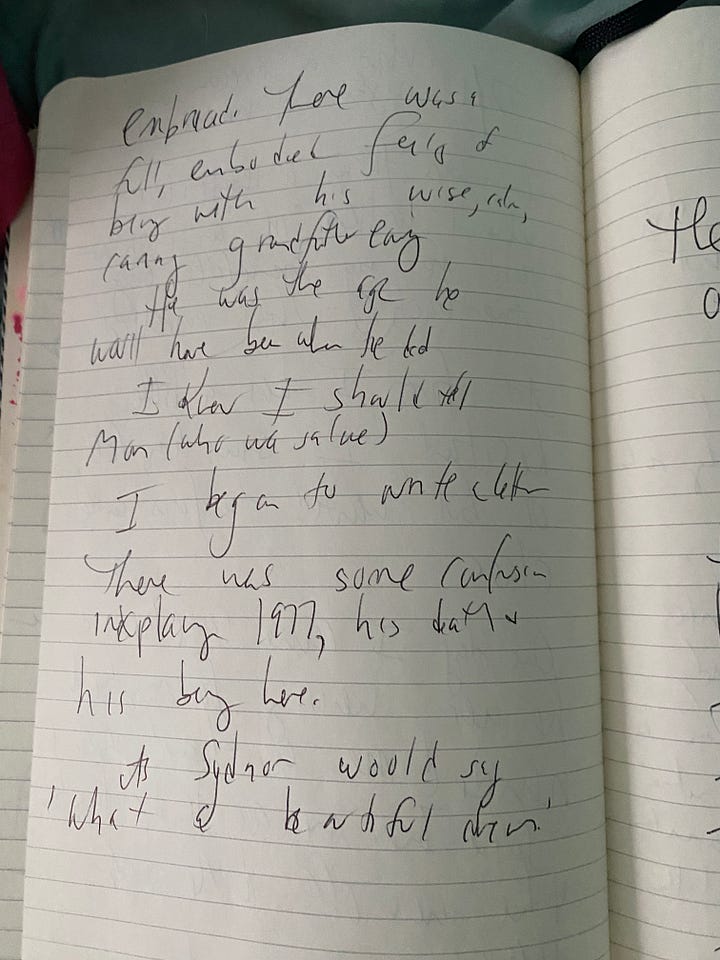 embraced. There was a
full, embodied feeling of
being with his wise, calm,
caring grandfather
He was the age he
would have been when he died
I knew I should tell
Mom (who was
I began to write a letter
There was some confusion
in explaining 1977, his death +
his being here.
As Sydnor would say
'What a beautiful dream.'
The